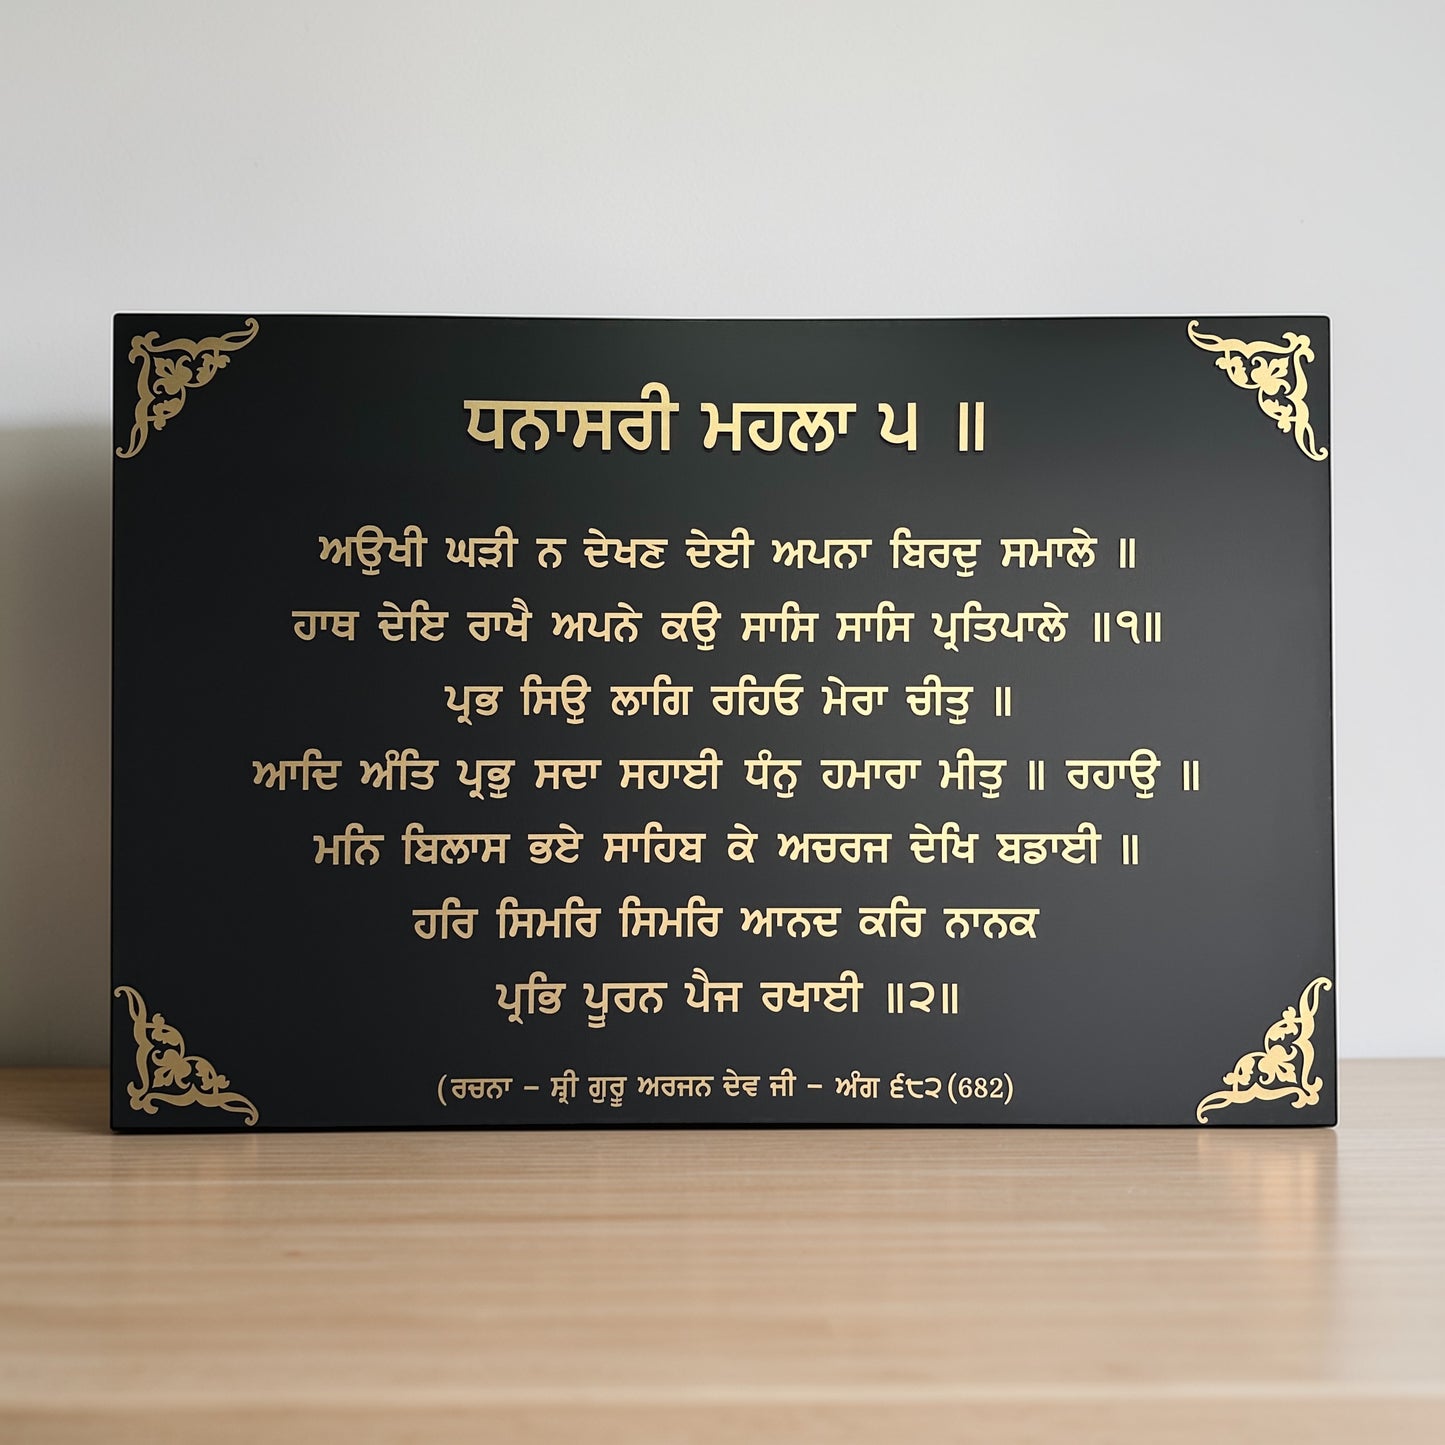 ਧਨਾਸਰੀ ਮਹਲਾ ੫ ॥
ਅਉਖੀ ਘੜੀ ਨ ਦੇਖਣ ਦੇਈ ਅਪਨਾ ਬਿਰਦੁ ਸਮਾਲੇ ॥
ਹਾਥ ਦੇਇ ਰਾਖੈ ਅਪਨੇ ਕਉ ਸਾਸਿ ਸਾਸਿ ਪ੍ਰਤਿਪਾਲੇ ॥੧॥
ਪ੍ਰਭ ਸਿਉ ਲਾਗਿ ਰਹਿਓ ਮੇਰਾ ਚੀਤੁ ॥
ਆਦਿ ਅੰਤਿ ਪ੍ਰਭੁ ਸਦਾ ਸਹਾਈ ਧੰਨੁ ਹਮਾਰਾ ਮੀਤੁ ॥ ਰਹਾਉ ॥
ਮਨਿ ਬਿਲਾਸ ਭਏ ਸਾਹਿਬ ਕੇ ਅਚਰਜ ਦੇਖਿ ਬਡਾਈ ॥
ਹਰਿ ਸਿਮਰਿ ਸਿਮਰਿ ਆਨਦ ਕਰਿ ਨਾਨਕ
ਪ੍ਰਭਿ ਪੂਰਨ ਪੈਜ ਰਖਾਈ ॥੨॥
(ਰਚਨਾ – ਸ਼੍ਰੀ ਗੁਰੂ ਅਰਜਨ ਦੇਵ ਜੀ – ਅੰਗ ੬੮੨(682)